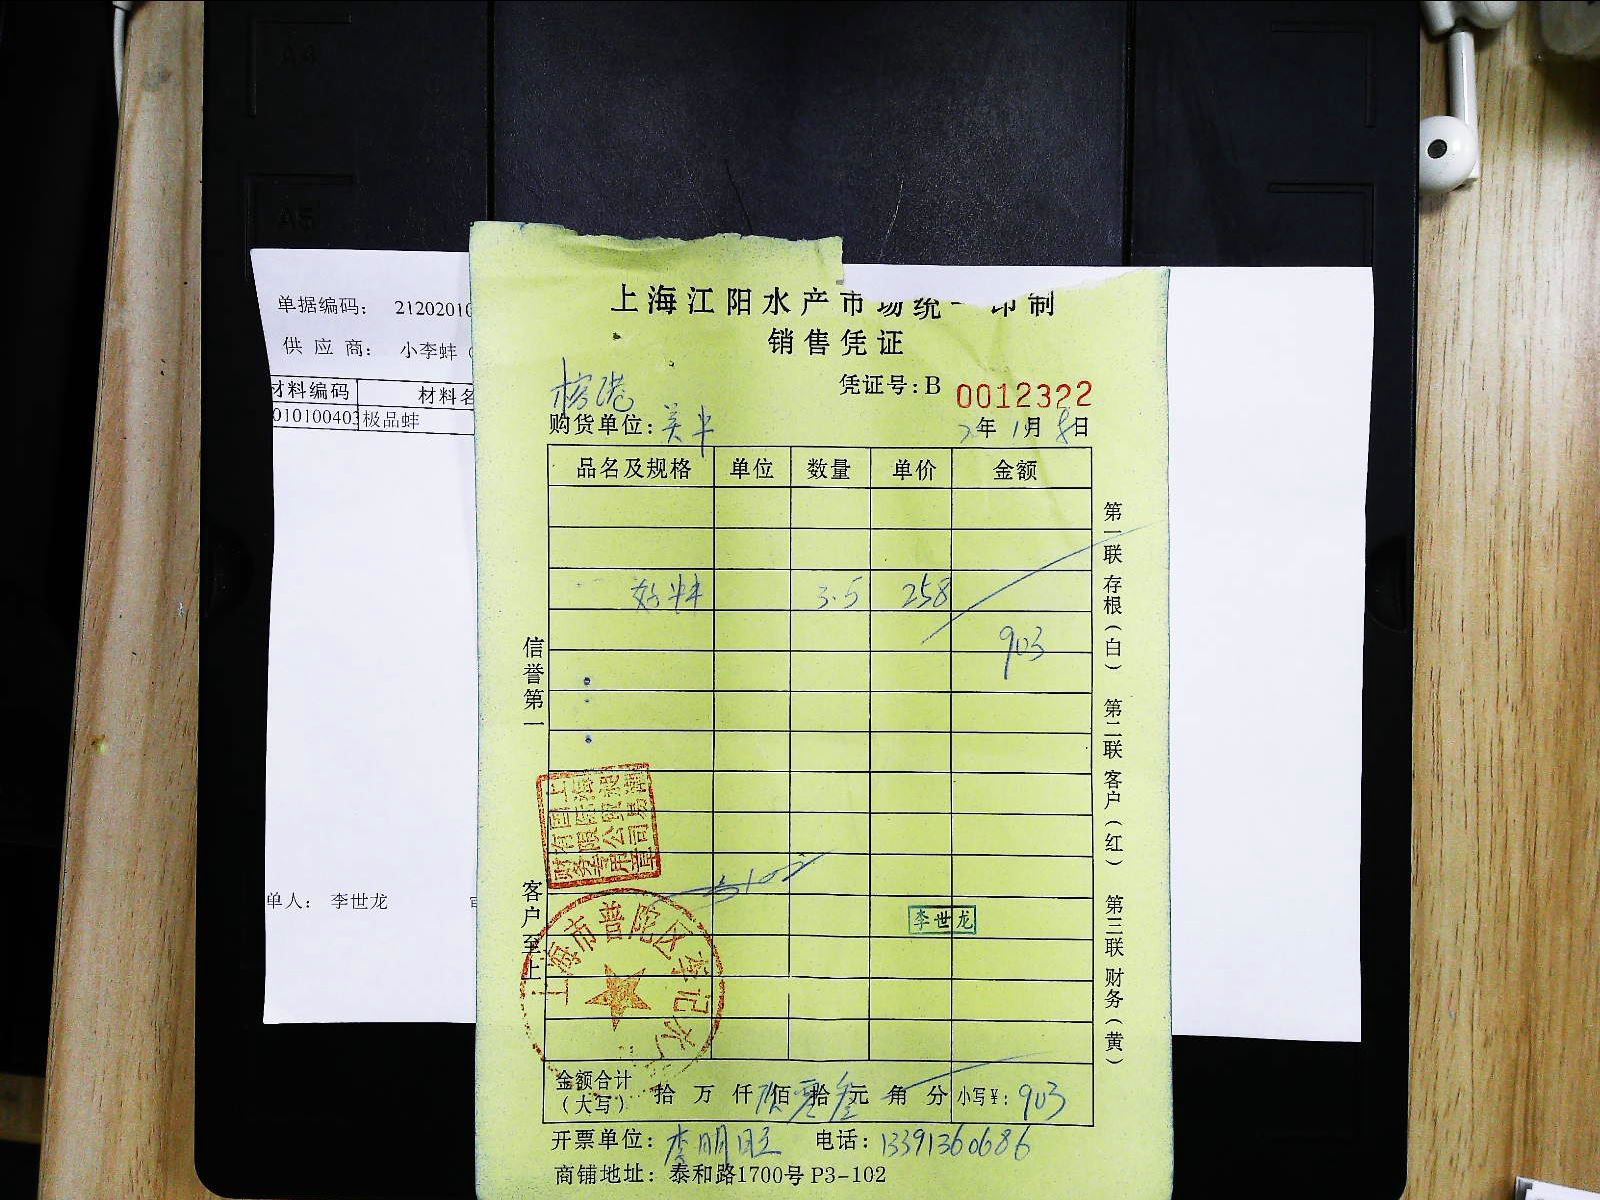 A4
A5
单据编码： 21202010
供 应 商： 小李蚌（
材料编码 材料名
010100403 极品蚌
单人： 李世龙
上海江阳水产市场统一印制
销售凭证
凭证号：B 0012322
购货单位：
2年 1月 8日
品名及规格 单位 数量 单价 金额
3.5 258
903
信誉第一
客户至上
第一联 存根（白） 第二联 客户（红） 第三联 财务（黄）
有限公司
财务专用章
上海市普陀区李记水
李世龙
金额合计（大写） 拾 万 仟 玖佰 零拾 叁元 角 分 小写¥：903
开票单位：李明旺 电话：13391360686
商铺地址：泰和路1700号 P3-102